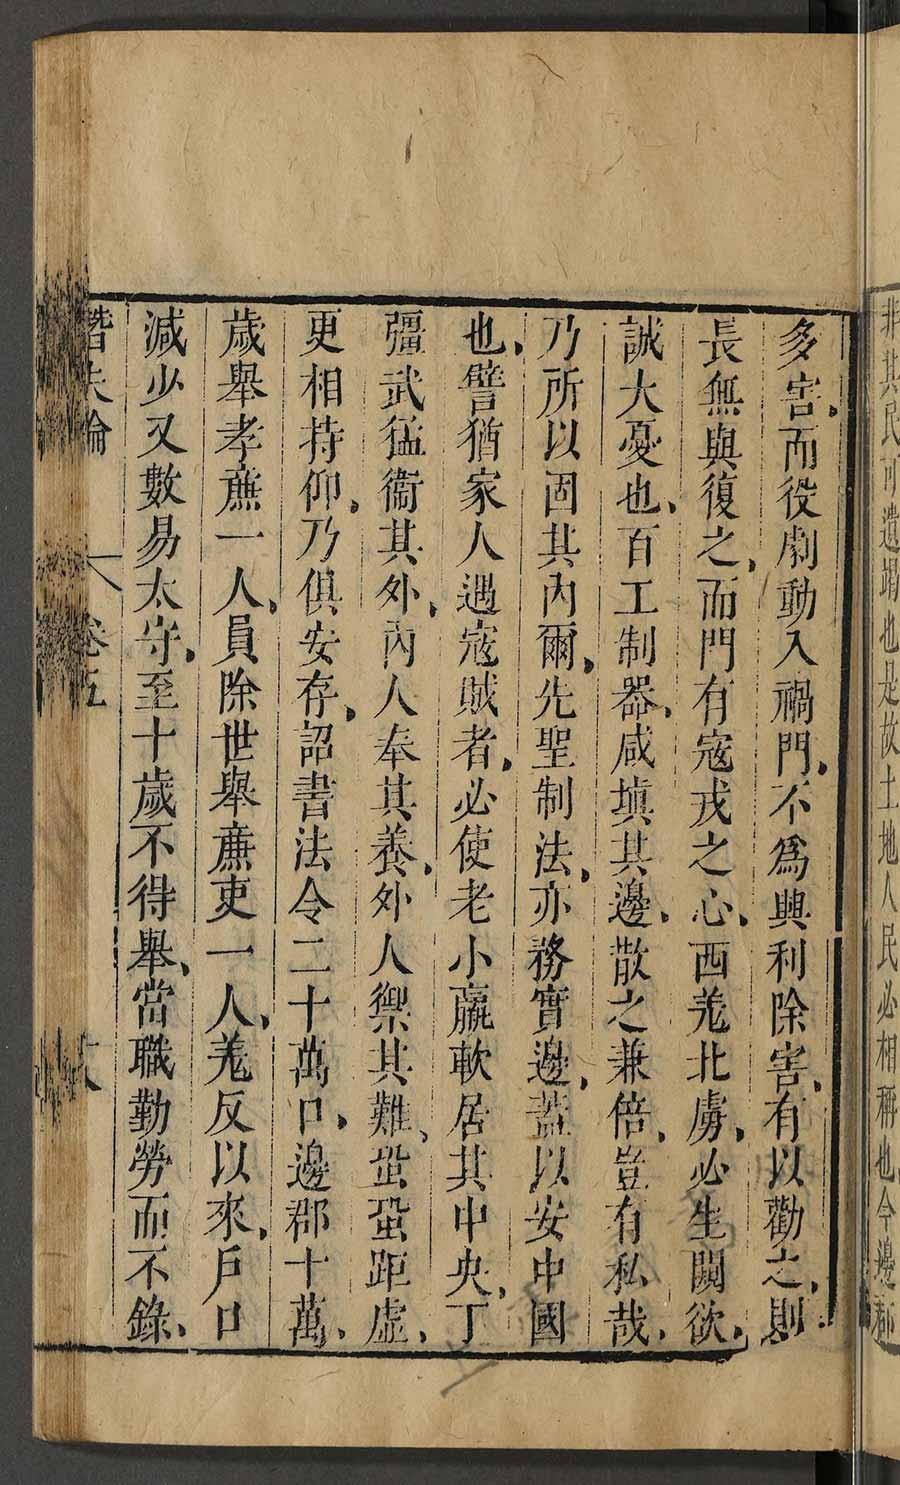 非其民可遺竭也是故土地人民必相稱也今邊郡
多害而役劇動入禍門不爲興利除害有以勸之則
長無與復之而門有寇戎之心西羌北虜必生闚欲
誠大憂也百工制器咸填其邊散之兼倍豈有私哉
乃所以固其內爾先聖制法亦務實邊蓋以安中國
也譬猶家人遇寇賊者必使老小羸軟居其中央丁
彊武猛衞其外內人奉其養外人禦其難蛩蛩距虛
更相持仰乃俱安存詔書法令二十萬口邊郡十萬
歲舉孝亷一人員除世舉亷吏一人羌反以來戶口
減少又數易太守至十歲不得舉當職勤勞而不錄
潛夫論 卷五